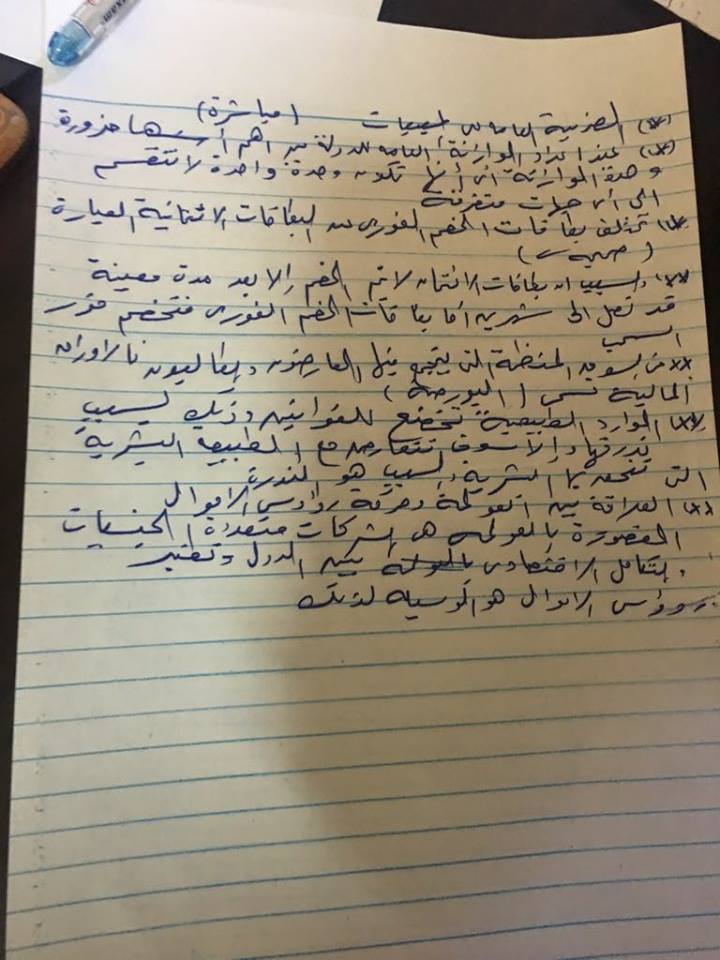 (**) الضريبة العامة لى لمبيعات (مباشرة)
(**) عند اعداد الموازنة العامة للدولة من اهم أسسها ضرورة
وحدة الموازنة اى أن تكون وحدة واحدة لا تنقسم
الى أى جهات متفرقة
** تختلف بطاقات الخصم الفورى عن البطاقات الائتمانية العبارة
(صحيحة)
** والسبب ان بطاقات الائتمان لا يتم الخصم إلا بعد مدة معينة
قد تصل الى شهرين أما بطاقات الخصم الفورى فتخصم فور
السحب
** السوق المنظمة التى يتجمع فيها العارضون والطالبون للاوراق
المالية تسمى (البورصة)
** الموارد الطبيعية تخضع للقوانين وذلك لسبب
ندرتها والأسوف تتعارض مع الطبيعة البشرية
التى تتصف بها البشرية والسبب هو الندرة
** العلاقة بين العولمة وحركة رؤوس الاموال
المقصورة بالعولمه هى الشركات متعددة الجنسيات
والتكامل الاقتصادى بين الدول وتعتبر
رؤوس الاموال هو الوسيله لذلك